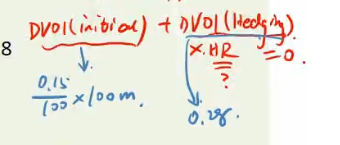 DV01 (initial) + DV01 (Hedging)
8
x.HR = 0.
?
0.15
/100 × 100m.
0.28.